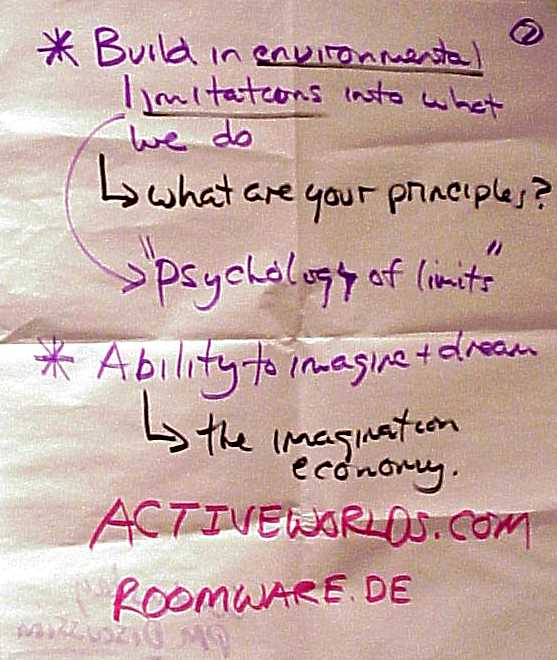 ②
* Build in environmental
limitations into what
we do
↳ what are your principles?
"psychology of limits"
* Ability to imagine + dream
↳ the imagination
economy.
ACTIVEWORLDS.COM
ROOMWARE.DE